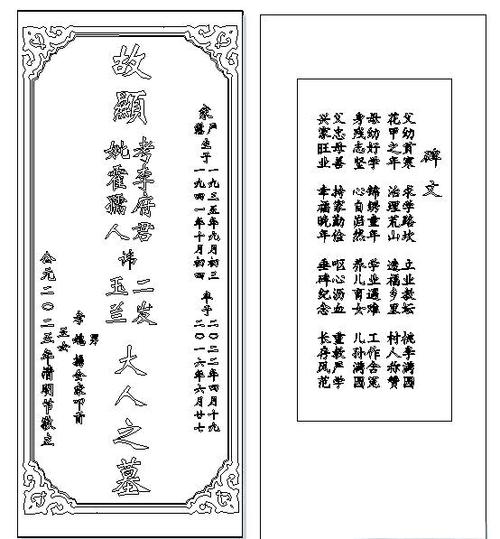 家严慈 生于 一九三五年九月初三 卒于 二〇二二年四月十九
一九四一年十月初四 二〇一六年六月廿七
故顯
考李府君
妣霍孺人
諱
二发
玉兰
大人之墓
孝
男
女
媳
叩首
公元二〇二五年清明节敬立
碑文
父幼貧寒 求学路坎 立业教坛 桃李满園
花甲之年 治理荒山 造福乡里 村人称赞
母幼好学 锦绣童年 学业遇难 工作含冤
身残志坚 心自岿然 养儿育女 儿孙满園
父忠母善 持家勤俭 呕心沥血 重教严学
兴家旺业 幸福晚年 垂碑纪念 长存风范